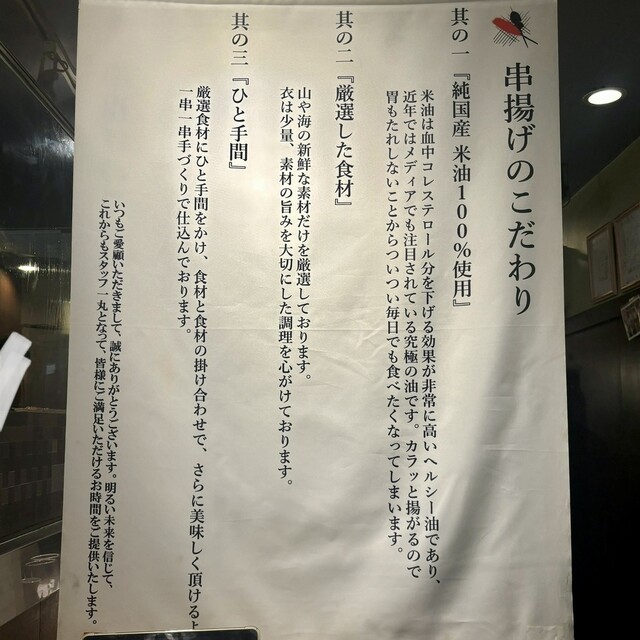 串揚げのこだわり
其の一『純国産 米油100%使用』
米油は血中コレステロール分を下げる効果が非常に高いヘルシー油であり、
近年ではメディアでも注目されている究極の油です。カラッと揚がるので
胃もたれしないことからついつい毎日でも食べたくなってしまいます。
其の二『厳選した食材』
山や海の新鮮な素材だけを厳選しております。
衣は少量、素材の旨みを大切にした調理を心がけております。
其の三『ひと手間』
厳選食材にひと手間をかけ、食材と食材の掛け合わせで、さらに美味しく頂けるよ
一串一串手づくりで仕込んでおります。
いつもご愛顧いただきまして、誠にありがとうございます。明るい未来を信じて、
これからもスタッフ一丸となって、皆様にご満足いただけるお時間をご提供いたします。